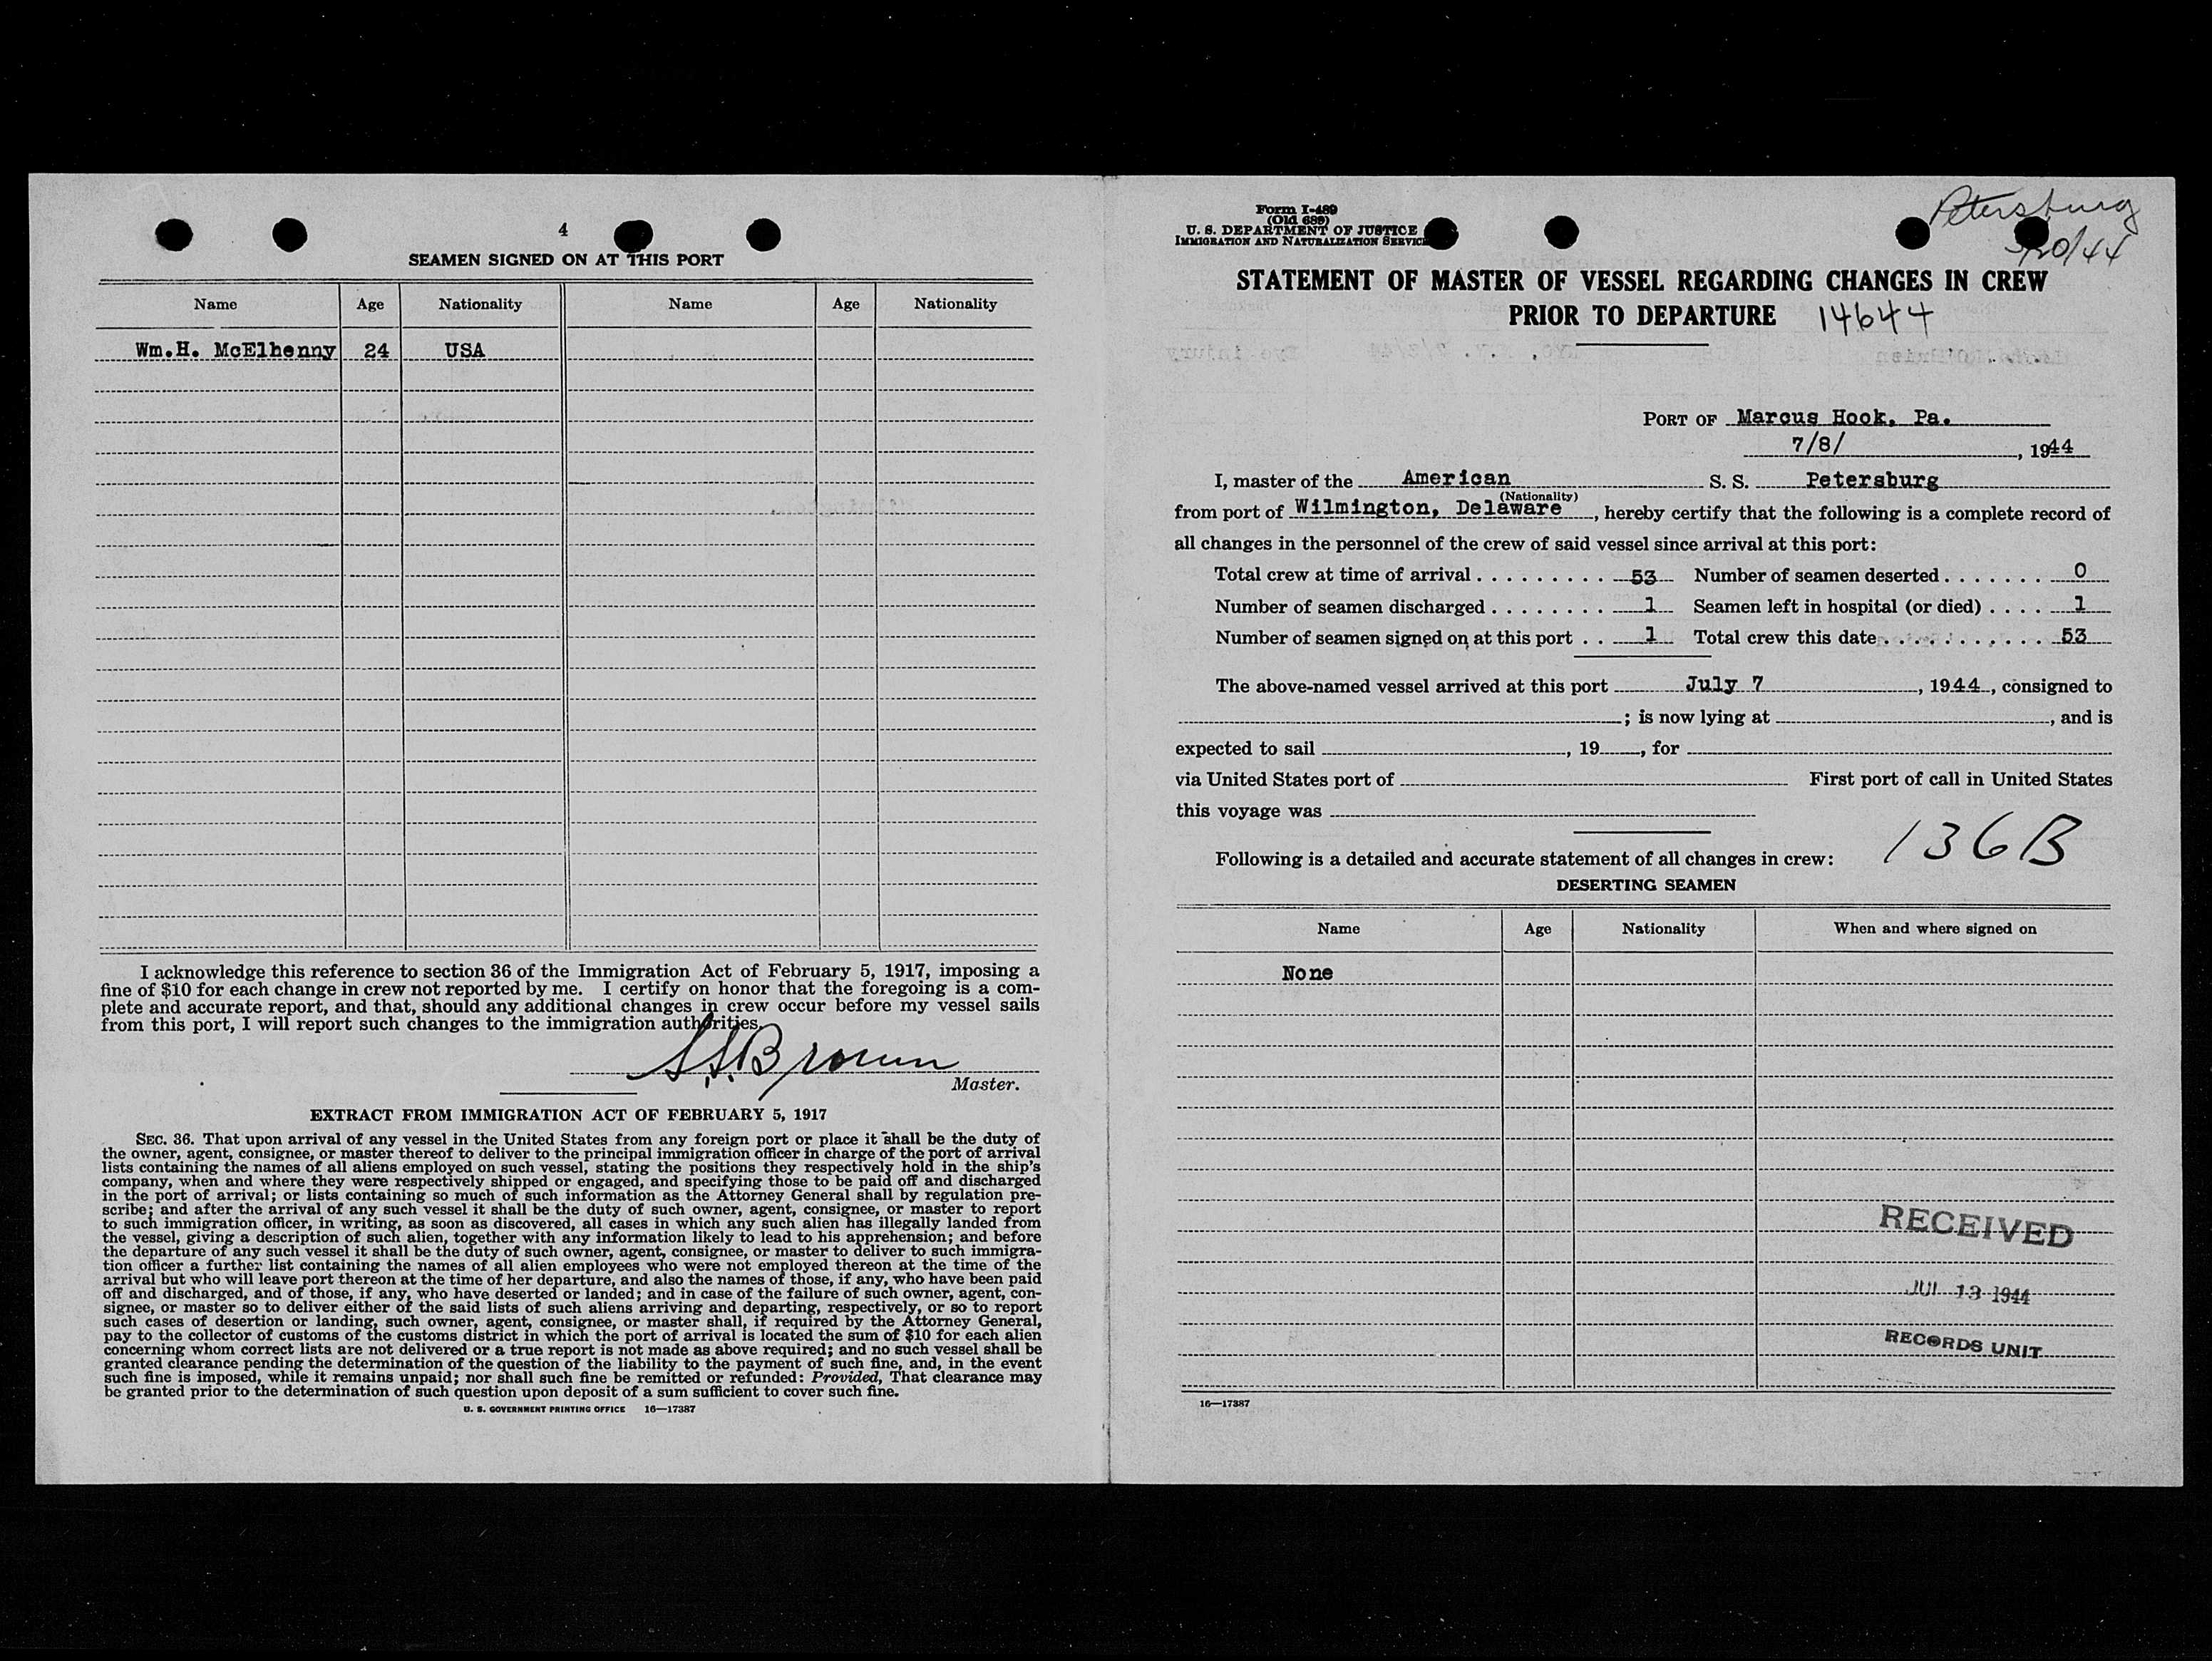 4
SEAMEN SIGNED ON AT THIS PORT
Name Age Nationality Name Age Nationality
Wm.H. McElhenny 24 USA
I acknowledge this reference to section 36 of the Immigration Act of February 5, 1917, imposing a
fine of $10 for each change in crew not reported by me. I certify on honor that the foregoing is a com-
plete and accurate report, and that, should any additional changes in crew occur before my vessel sails
from this port, I will report such changes to the immigration authorities.
S.S. Brown
Master.
EXTRACT FROM IMMIGRATION ACT OF FEBRUARY 5, 1917
SEC. 36. That upon arrival of any vessel in the United States from any foreign port or place it shall be the duty of
the owner, agent, consignee, or master thereof to deliver to the principal immigration officer in charge of the port of arrival
lists containing the names of all aliens employed on such vessel, stating the positions they respectively hold in the ship's
company, when and where they were respectively shipped or engaged, and specifying those to be paid off and discharged
in the port of arrival; or lists containing so much of such information as the Attorney General shall by regulation pre-
scribe; and after the arrival of any such vessel it shall be the duty of such owner, agent, consignee, or master to report
to such immigration officer, in writing, as soon as discovered, all cases in which any such alien has illegally landed from
the vessel, giving a description of such alien, together with any information likely to lead to his apprehension; and before
the departure of any such vessel it shall be the duty of such owner, agent, consignee, or master to deliver to such immigra-
tion officer a further list containing the names of all alien employees who were not employed thereon at the time of the
arrival but who will leave port thereon at the time of her departure, and also the names of those, if any, who have been paid
off and discharged, and of those, if any, who have deserted or landed; and in case of the failure of such owner, agent, con-
signee, or master so to deliver either of the said lists of such aliens arriving and departing, respectively, or so to report
such cases of desertion or landing, such owner, agent, consignee, or master shall, if required by the Attorney General,
pay to the collector of customs of the customs district in which the port of arrival is located the sum of $10 for each alien
concerning whom correct lists are not delivered or a true report is not made as above required; and no such vessel shall be
granted clearance pending the determination of the question of the liability to the payment of such fine, and, in the event
such fine is imposed, while it remains unpaid; nor shall such fine be remitted or refunded: Provided, That clearance may
be granted prior to the determination of such question upon deposit of a sum sufficient to cover such fine.
U. S. GOVERNMENT PRINTING OFFICE 16—17387
Form I-489
(Old 689)
U. S. DEPARTMENT OF JUSTICE
IMMIGRATION AND NATURALIZATION SERVICE
Petersburg
/20/44
STATEMENT OF MASTER OF VESSEL REGARDING CHANGES IN CREW
PRIOR TO DEPARTURE 14644
PORT OF Marcus Hook, Pa.
7/8/, 1944
I, master of the American S. S. Petersburg
(Nationality)
from port of Wilmington, Delaware, hereby certify that the following is a complete record of
all changes in the personnel of the crew of said vessel since arrival at this port:
Total crew at time of arrival . . . . . . . . . . 53 Number of seamen deserted . . . . . . . 0
Number of seamen discharged . . . . . . . . 1 Seamen left in hospital (or died) . . . . 1
Number of seamen signed on at this port . . 1 Total crew this date . . . . . . . . . . . 53
The above-named vessel arrived at this port July 7, 1944, consigned to
; is now lying at , and is
expected to sail , 19 , for
via United States port of First port of call in United States
this voyage was
136B
Following is a detailed and accurate statement of all changes in crew:
DESERTING SEAMEN
Name Age Nationality When and where signed on
None
RECEIVED
JUL 13 1944
RECORDS UNIT
16—17387